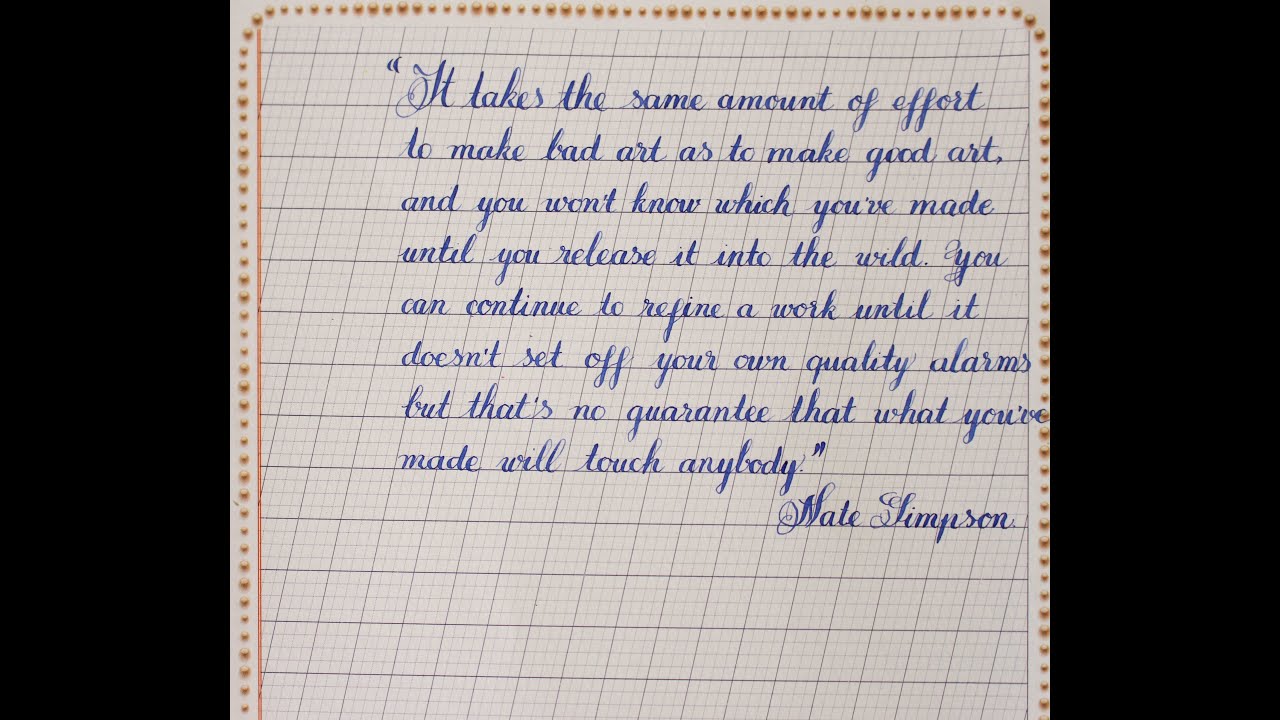 “It takes the same amount of effort
to make bad art as to make good art,
and you won't know which you've made
until you release it into the wild. You
can continue to refine a work until it
doesn't set off your own quality alarms
but that's no guarantee that what you've
made will touch anybody.”
Nate Simpson.